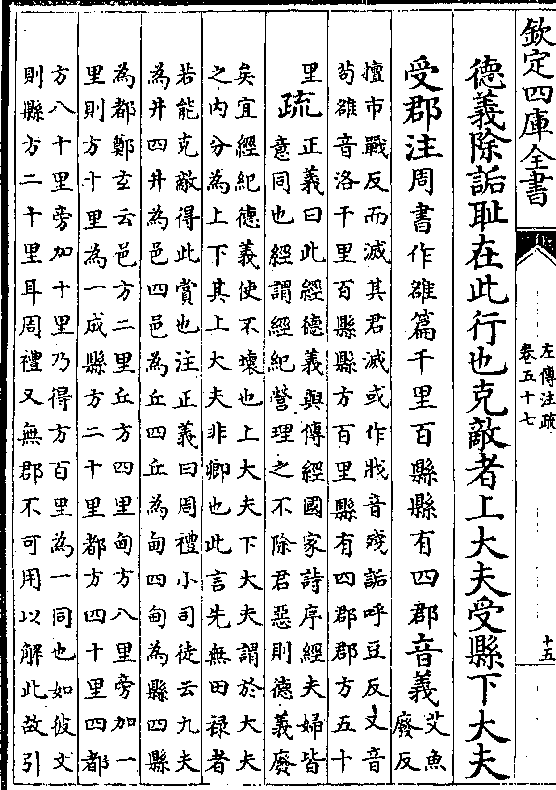 欽定四庫全書
左傳注疏
卷五十七
十五
德義除詬耻在此行也克敵者上大夫受縣下大夫
受郡注周書作雒篇千里百縣縣有四郡音義
艾魚
廢反
擅市戰反而滅其君滅或作戕音殘詬呼豆反又音
茍雒音洛千里百縣縣方百里縣有四郡郡方五十
里
疏
正義曰此經德義與傳經國家詩序經夫婦皆
意同也經謂經紀營理之不除君惡則德義廢
矣宜經紀德義使不壞也上大夫下大夫謂於大夫
之内分為上下其上大夫非卿也此言先無田禄者
若能克敵得此賞也注正義曰周禮小司徒云九夫
為井四井為邑四邑為丘四丘為甸四甸為縣四縣
為都鄭𤣥云邑方二里丘方四里甸方八里旁加一
里則方十里為一成縣方二十里都方四十里四都
方八十里旁加十里乃得方百里為一同也如彼文
則縣方二十里耳周禮又無郡不可用以解此故引